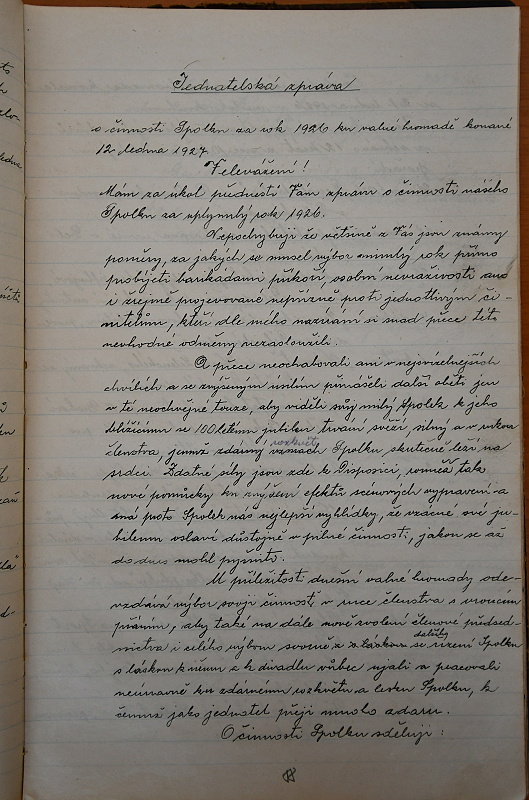 Jednatelská zpráva
o činnosti Spolku za rok 1926 ku valné hromadě konané
12 ledna 1927.
Velevážení!
Mám za úkol přednésti Vám zprávu o činnosti našeho
Spolku za uplynulý rok 1926.
Nepochybuji že většině z Vás jsou známy
poměry, za jakých se musel výbor minulý rok přímo
probíjeti barikádami příkoří, osobní nevraživosti ano
i zřejmě projevované nepřízně proti jednotlivým či-
nitelům, kteří dle mého nazírání si snad přece této
nevhodné odměny nezasloužili.
A přece neochabovali ani v nejsvízelnějších
chvílích a se zvýšeným úsilím přinášeli další oběti jen
v té neochvějné touze, aby viděli svůj milý Spolek k jeho
blížícímu se 100letému jubileu trvání svěží, silný a v rukou
členstva, jemuž zdárný rozkvět Spolku skutečně leží na
srdci. Zdatné síly jsou zde k disposici, rovněž tak
nové pomůcky ku zvýšení efektů scénových vypravení a
má proto Spolek náš nejlepší vyhlídky, že vzácné své ju-
bileum oslaví důstojně v pilné činnosti, jakou se až
do dnes mohl pyšniti.
U příležitosti dnešní valné hromady ode-
vzdává výbor svoji činnost v ruce členstva s vroucím
přáním, aby také na dále nově zvolení členové předsed-
nictva i celého výboru svorně se dalšího řízení Spolku
s láskou k němu a k divadlu vůbec ujali a pracovali
neúnavně ku zdárnému rozkvětu a lesku Spolku, k
čemuž jako jednatel přeji mnoho zdaru.
O činnosti Spolku sděluji: